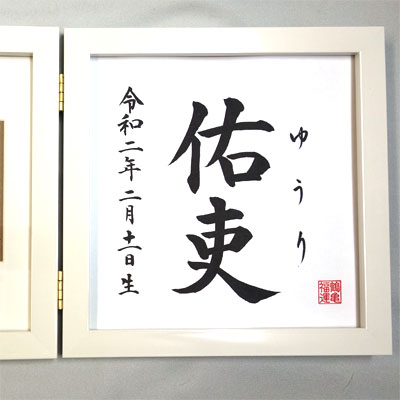 ゆうり
佑吏
令和二年二月十一日生
鶴亀
福運